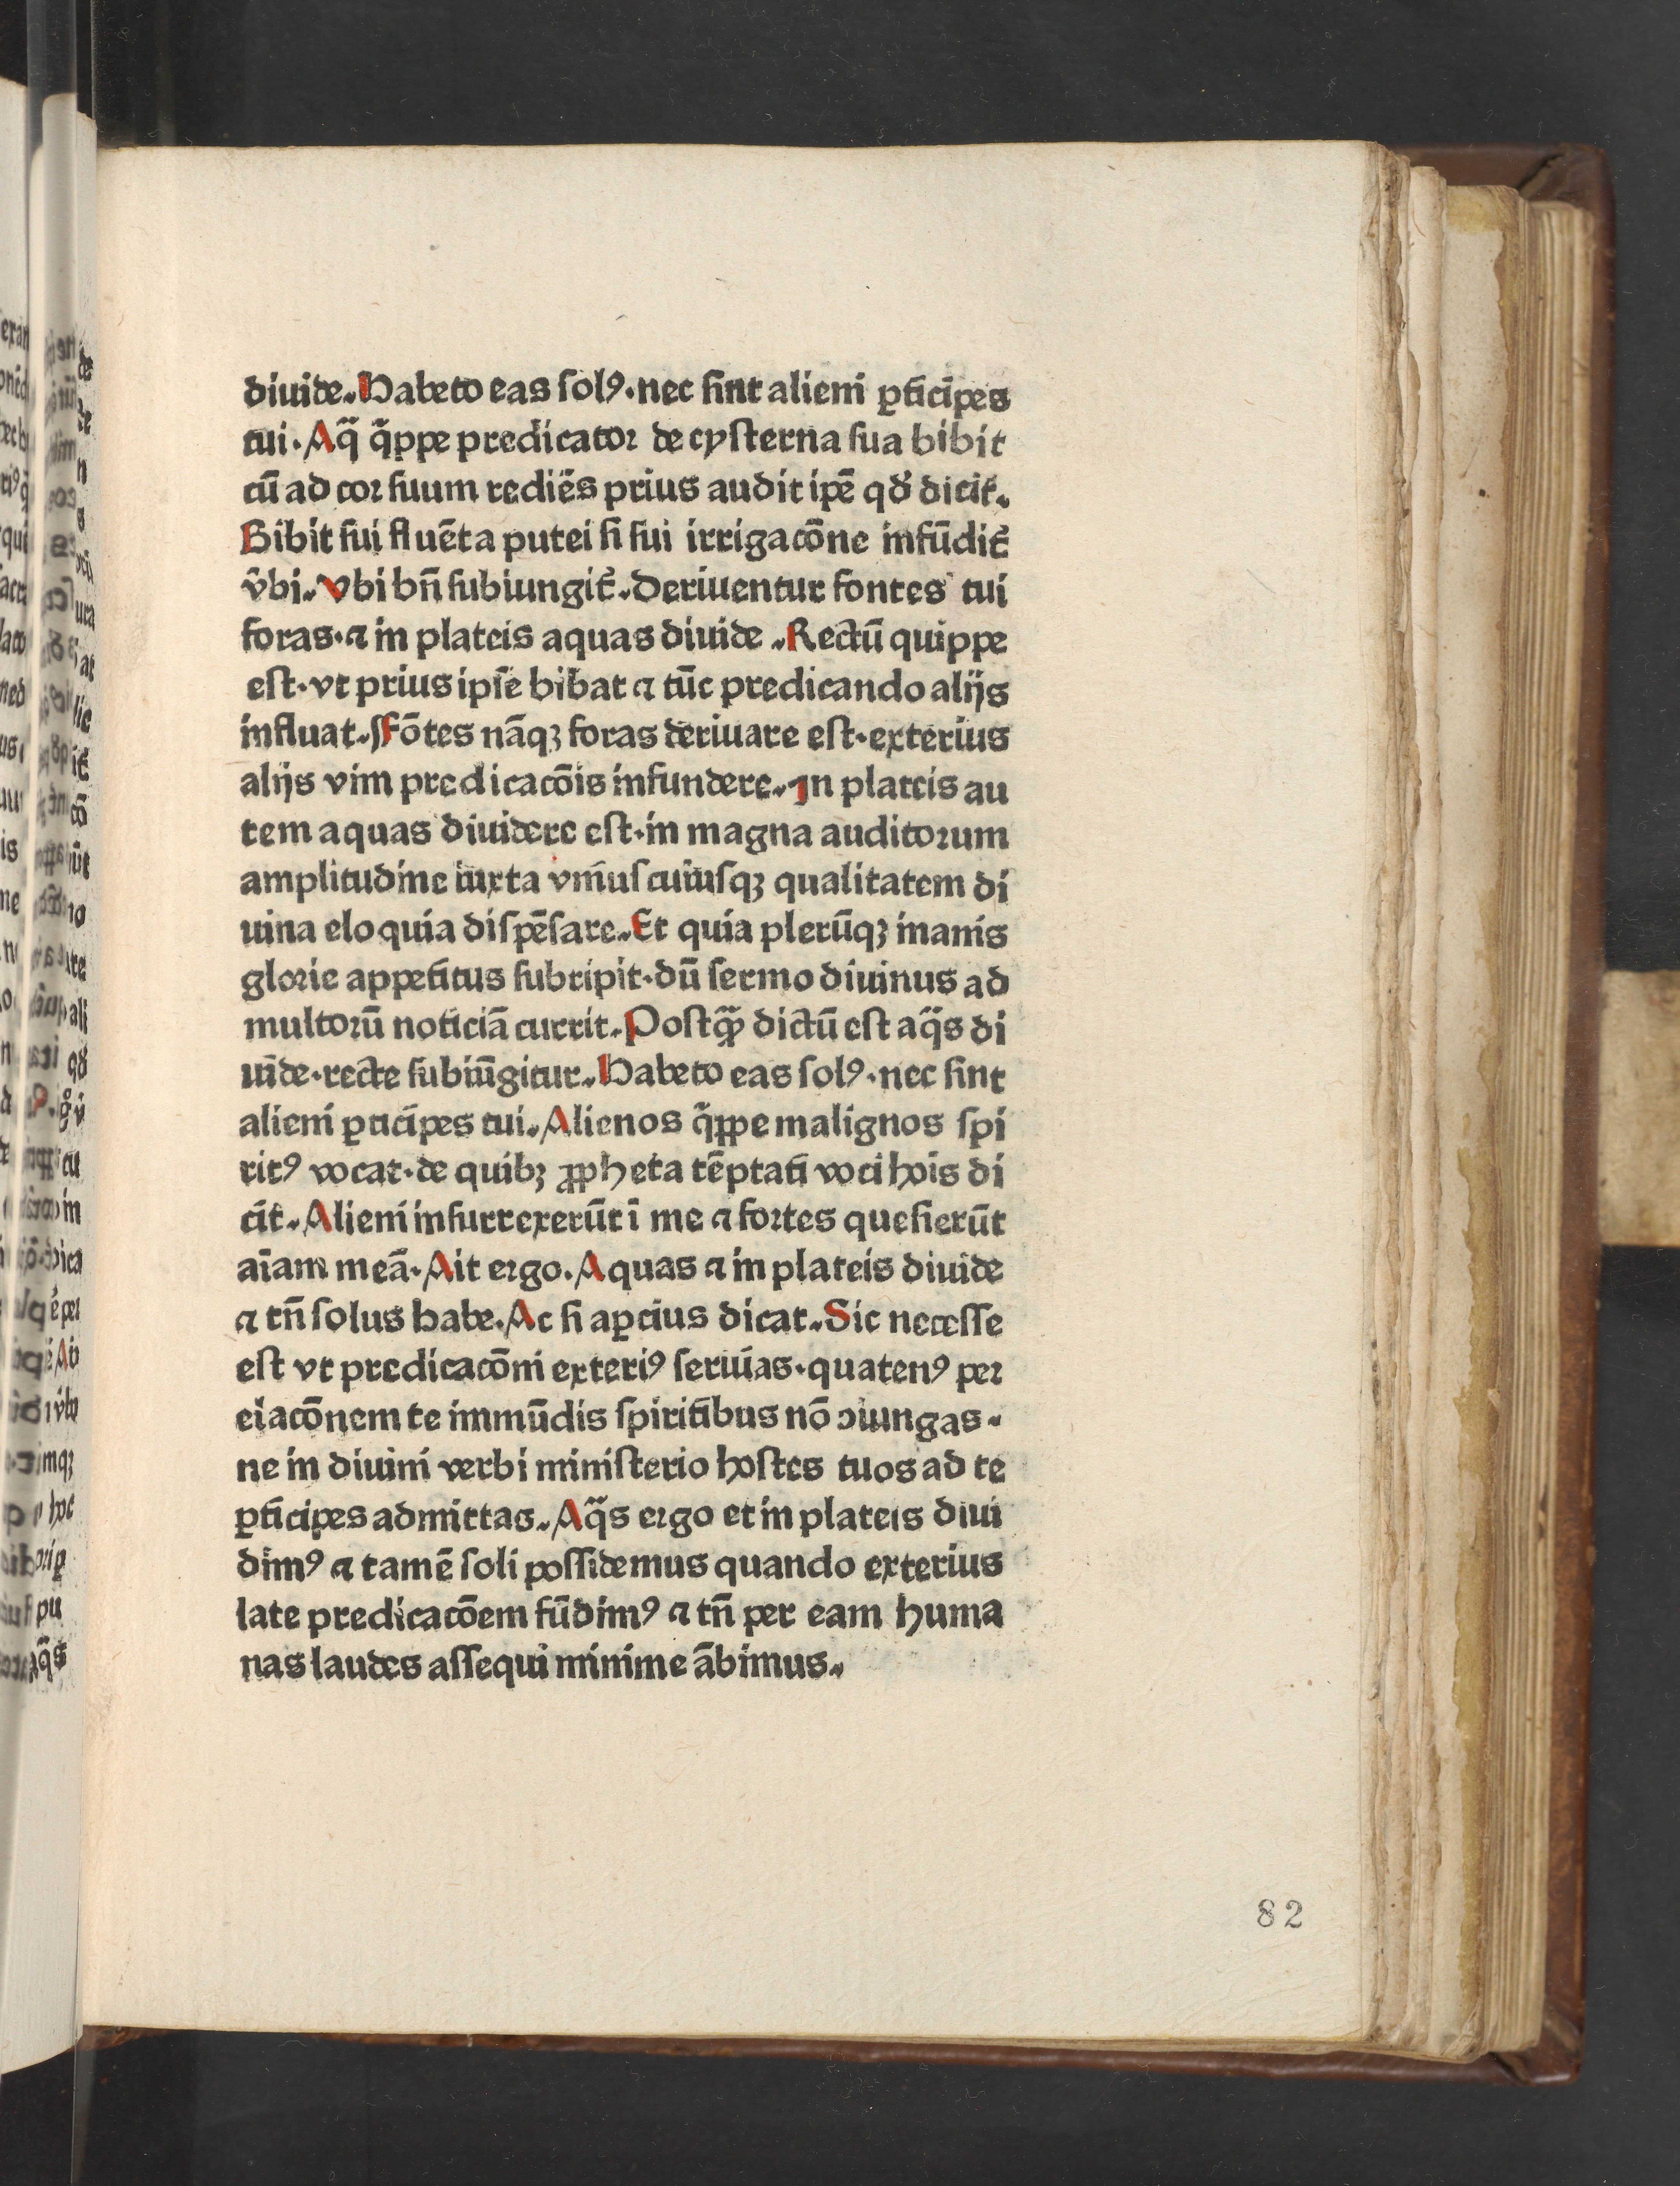 diuide. Habeto eas solꝰ. nec sint alieni ꝑticipes
tui. Aq̃ q̃ppe predicator de cysterna sua bibit
cū ad cor suum rediēs prius audit ip̄e qđ dicit.
Bibit sui fluēta putei si sui irrigacōne infūdit̄
v̄bi. Vbi bn̄ subiungit̄. Deriuentur fontes tui
foras. ⁊ in plateis aquas diuide. Rectū quippe
est. vt prius ipse bibat ⁊ tūc predicando alijs
influat. Fōtes nāqꝫ foras deriuare est. exterius
alijs vim predicacōis infundere. In plateis au
tem aquas diuidere est. in magna auditorum
amplitudine iuxta vniuscuiusqꝫ qualitatem di
uina eloquia dispēsare. Et quia plerūqꝫ inanis
glorie appetitus subripit. dū sermo diuinus ad
multorū noticiā currit. Postq̃ꝫ dictū est aq̃s di
uide. recte subiūgitur. Habeto eas solꝰ. nec sint
alieni ꝑticipes tui. Alienos q̃ppe malignos spi
ritꝰ vocat. de quibꝫ ꝓpheta tēptati voci hoīs di
cit. Alieni insurrexerūt ī me ⁊ fortes quesierūt
aīam meā. Ait ergo. Aquas ⁊ in plateis diuide
⁊ tn̄ solus habe. Ac si aꝑcius dicat. Sic necesse
est vt predicacōni exteriꝰ seruias. quatenꝰ per
elacōnem te immūdis spiritibus nō ↄiungas.
ne in diuini verbi ministerio hostes tuos ad te
ꝑticipes admittas. Aq̃s ergo et in plateis diui
dimꝰ ⁊ tamē soli possidemus quando exterius
late predicacōem fūdimꝰ ⁊ tn̄ per eam huma
nas laudes assequi minime ābimus.
82